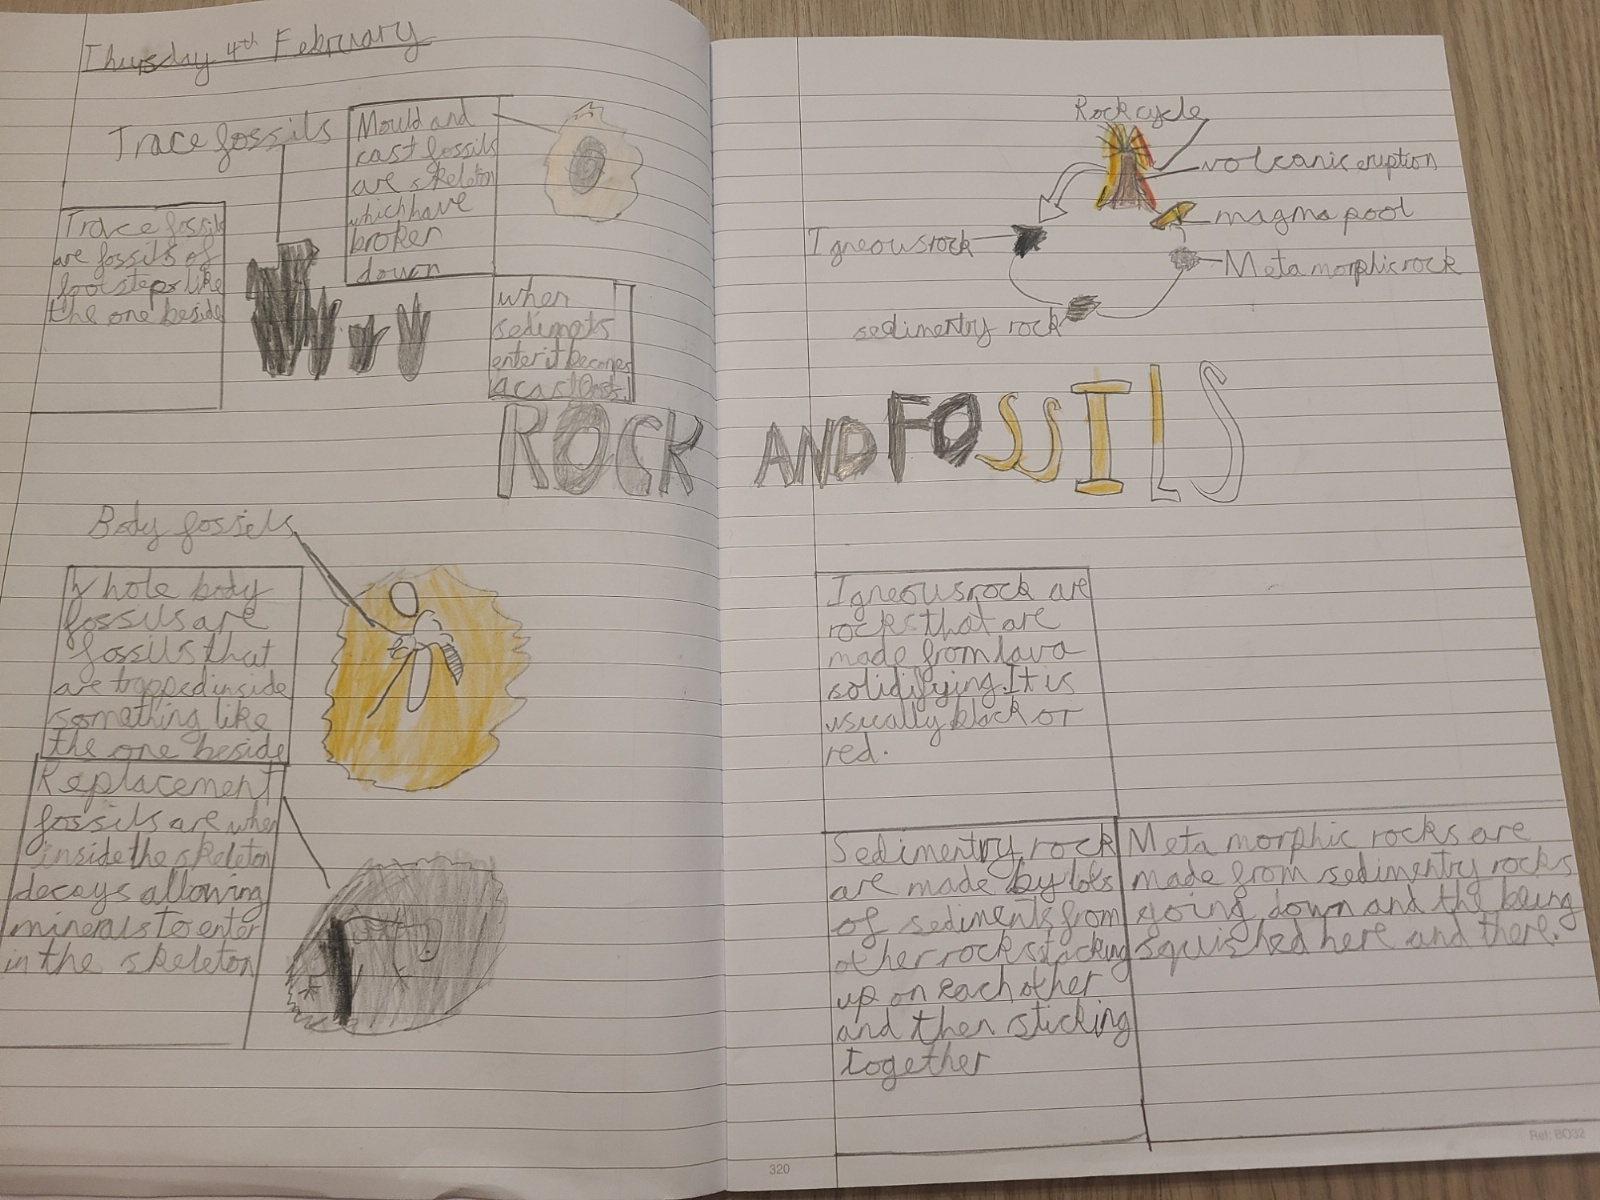 Thursday 4th February
Trace fossils
Mould and
cast fossils
are skeleton
which have
broken
down
Trace fossils
are fossils of
footsteps like
the one beside
when
sedimets
enter it becomes
a cast
ROCK AND FOSSILS
Body fossils
Whole body
fossils are
fossils that
are trapped inside
something like
the one beside
Replacement
fossils are when
inside the skeleton
decays allowing
minerals to enter
in the skeleton
Rock cycle
volcanic eruption
magma pool
Igneous rock
Meta morphic rock
sedimentry rock
Igneous rock are
rocks that are
made from lava
solidifying. It is
usually black or
red.
Sedimentry rock
are made by lots
of sediments from
other rocks stacking
up on each other
and then sticking
together
Meta morphic rocks are
made from sedimentry rocks
going down and the being
squished here and there.
320
Ref: BO32